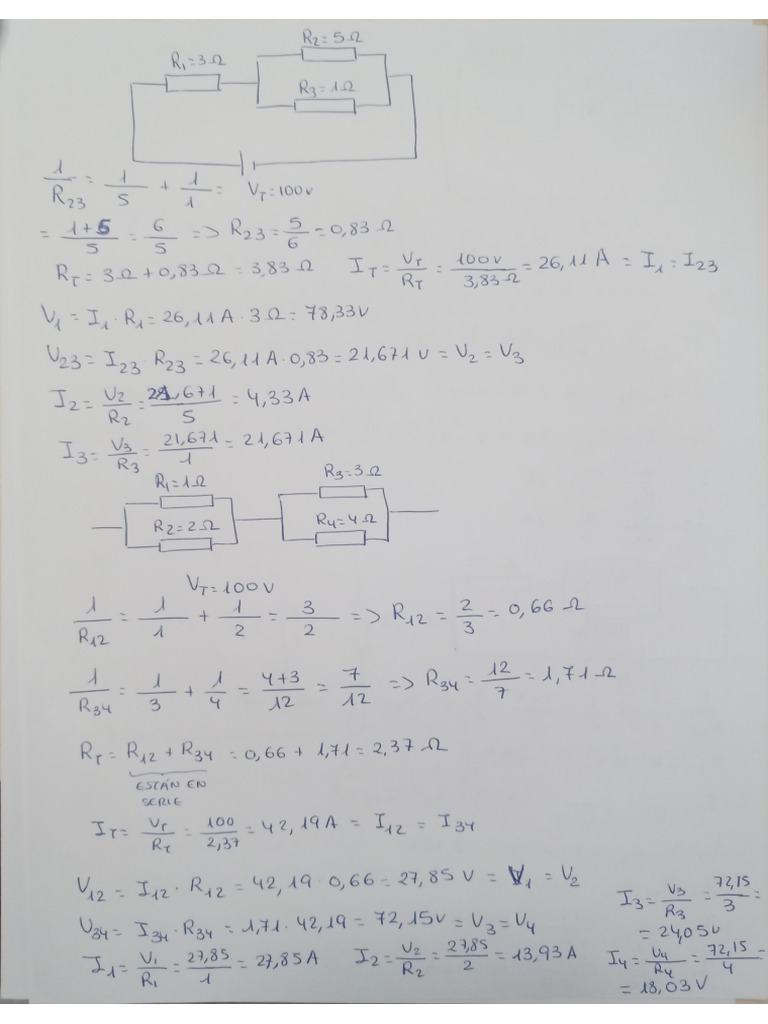 R₂=5Ω
R₁=3Ω
R₃=1Ω
1/R₂₃ = 1/5 + 1/1 = V_T=100v
= 1+5/5 = 6/5 => R₂₃ = 5/6 = 0,83 Ω
R_T = 3Ω + 0,83 Ω = 3,83 Ω I_T = V_T/R_T = 100v/3,83Ω = 26,11 A = I₁ = I₂₃
V₁ = I₁ · R₁ = 26,11A · 3Ω = 78,33v
V₂₃ = I₂₃ · R₂₃ = 26,11A · 0,83 = 21,671 v = V₂ = V₃
I₂ = V₂/R₂ = 21,671/5 = 4,33A
I₃ = V₃/R₃ = 21,671/1 = 21,671A
R₁=1Ω R₃=3Ω
R₂=2Ω R₄=4Ω
V_T=100V
1/R₁₂ = 1/1 + 1/2 = 3/2 => R₁₂ = 2/3 = 0,66 Ω
1/R₃₄ = 1/3 + 1/4 = 4+3/12 = 7/12 => R₃₄ = 12/7 = 1,71 Ω
R_T = R₁₂ + R₃₄ = 0,66 + 1,71 = 2,37 Ω
ESTÁN EN
SERIE
I_T = V_T/R_T = 100/2,37 = 42,19A = I₁₂ = I₃₄
V₁₂ = I₁₂ · R₁₂ = 42,19 · 0,66 = 27,85 V = V₁ = V₂
V₃₄ = I₃₄ · R₃₄ = 1,71 · 42,19 = 72,15v = V₃ = V₄
I₁ = V₁/R₁ = 27,85/1 = 27,85A I₂ = V₂/R₂ = 27,85/2 = 13,93A
I₃ = V₃/R₃ = 72,15/3 =
= 24,05v
I₄ = V₄/R₄ = 72,15/4 =
= 18,03V